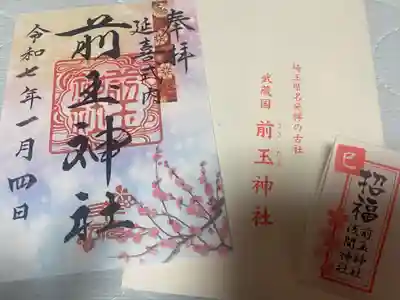 奉拝
延喜式内
前玉神社
令和七年一月四日
埼玉県名発祥の古社
武蔵国 前玉神社
さきたま
巳
招福
前玉神社
浅間神社